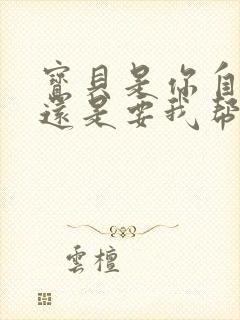 寶貝是你自
還是要我幫
雲檀